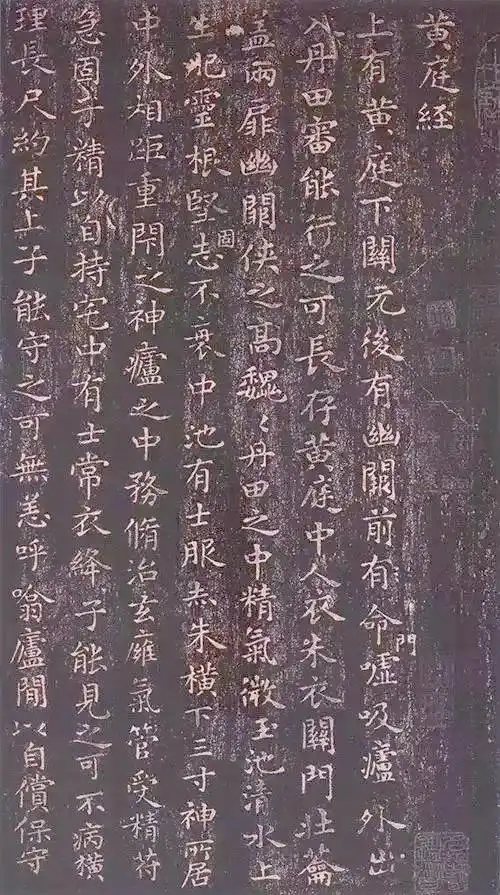 黄庭經
上有黄庭下關元後有幽闕前有命門嘘吸廬外出
入丹田審能行之可長存黄庭中人衣朱衣關門壯籥
盖兩扉幽闕俠之高魏〻丹田之中精氣微玉池清水上
生肥靈根堅固志不衰中池有士服赤朱横下三寸神所居
中外相距重閇之神廬之中務脩治玄廱氣管受精苻
急固子精以自持宅中有士常衣絳子能見之可不病横
理長尺約其上子能守之可無恙呼噏廬閒以自償保守